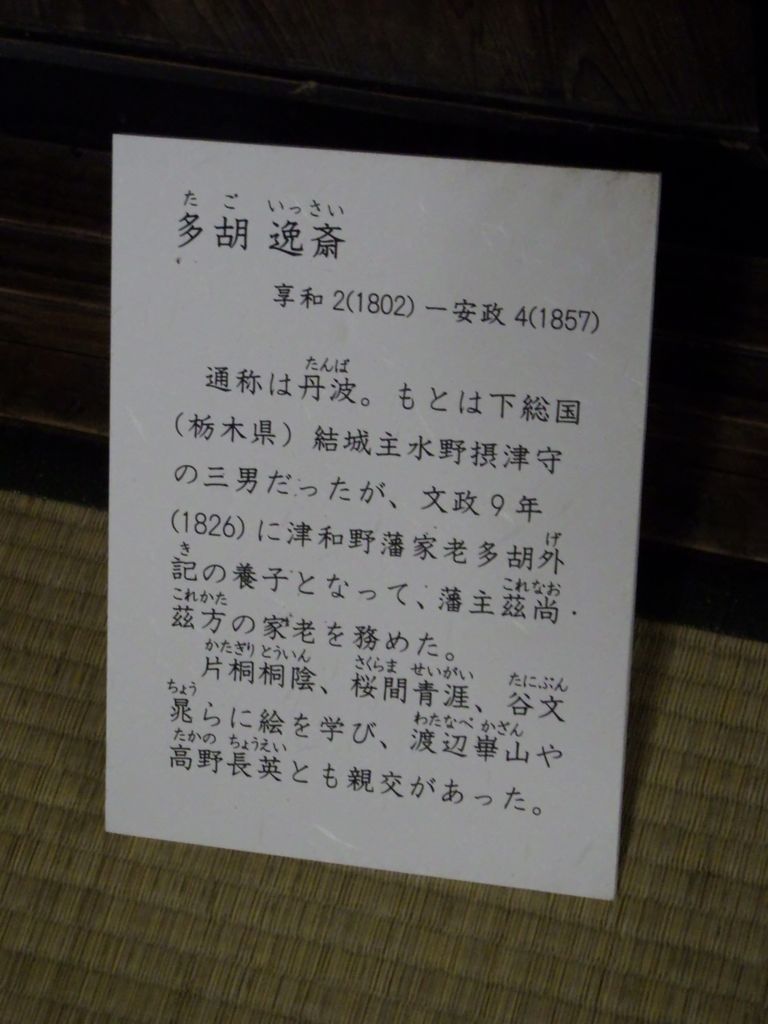 たご いっさい
多胡 逸斎
享和 2(1802) ー安政 4(1857)
たんば
通称は丹波。もとは下総国
(栃木県) 結城主水野摂津守
の三男だったが、文政9年
げ
(1826) に津和野藩家老多胡外
き これなお
記の養子となって、藩主茲尚・
これかた
茲方の家老を務めた。
かたぎりとういん さくらま せいがい たにぶん
片桐桐陰、桜間青涯、谷文
ちょう わたなべ かざん
晁らに絵を学び、渡辺崋山や
たかの ちょうえい
高野長英とも親交があった。